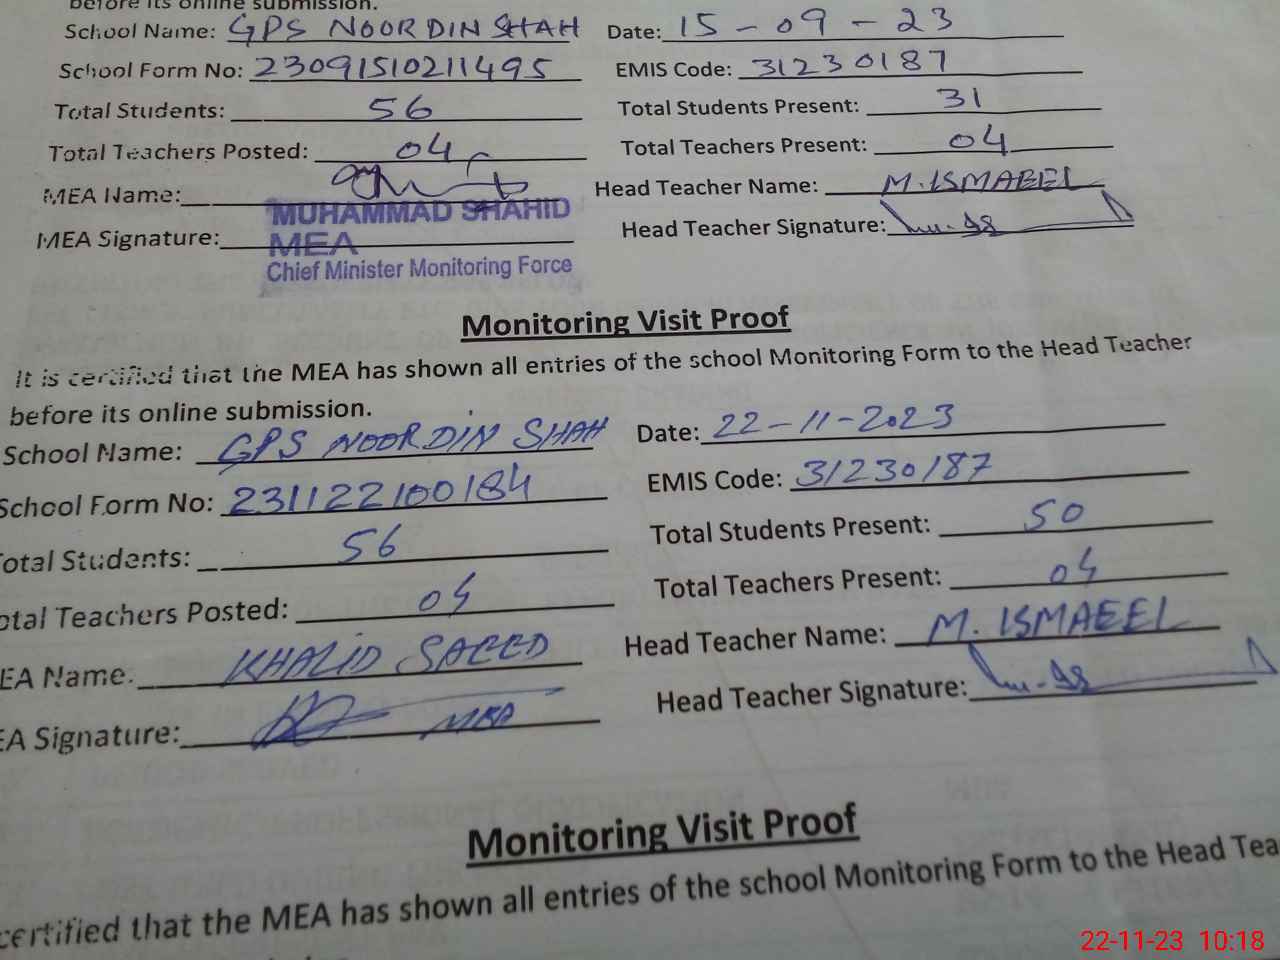 before its online submission.
School Name: GPS NOORDIN SHAH Date: 15-09-23
School Form No: 23091510211495 EMIS Code: 31230187
Total Students: 56 Total Students Present: 31
Total Teachers Posted: 04 Total Teachers Present: 04
MEA Name: Head Teacher Name: M. ISMAEEL
MUHAMMAD SHAHID
MEA Signature: Head Teacher Signature:
MEA
Chief Minister Monitoring Force
Monitoring Visit Proof
It is certified that the MEA has shown all entries of the school Monitoring Form to the Head Teacher
before its online submission.
School Name: GPS NOORDIN SHAH Date: 22-11-2023
School Form No: 231122100184 EMIS Code: 31230187
Total Students: 56 Total Students Present: 50
otal Teachers Posted: 04 Total Teachers Present: 04
EA Name: KHALID SAEED Head Teacher Name: M. ISMAEEL
EA Signature: MEA Head Teacher Signature:
Monitoring Visit Proof
certified that the MEA has shown all entries of the school Monitoring Form to the Head Tea
22-11-23 10:18